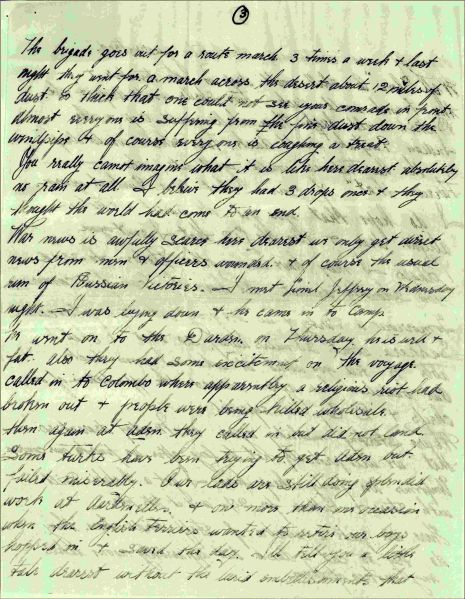 3
The brigade goes out for a route march 3 times a week & last
night they went for a march across the desert about 12 miles of
dust so thick that one could not see your comrade in front
almost everyone is suffering from the fine dust down the
windpipe & of course everyone is coughing a treat.
You really cannot imagine what it is like here dearest absolutely
no rain at all I believe they had 3 drops once & they
thought the world had come to an end.
War news is awfully scarce here dearest we only get direct
news from men & officers wounded & of course the usual
run of Russian Victories. — I met Jeffrey on Wednesday
night. — I was lying down & he came in to camp
He went on to the Dardn. on Thursday, he is well &
fat. Also they had some excitement on the voyage
called in to Colombo where apparently a religious riot had
broken out & people were being killed wholesale.
then again at Aden they called in but did not land
Some turks have been trying to get Aden but
failed miserably. Our lads are still doing splendid
work at Dardnelles & on more than one occasion
when the English terriers wanted to retire our boys
hopped in & saved the day. I'll tell you a little
tale dearest without the embellishments that